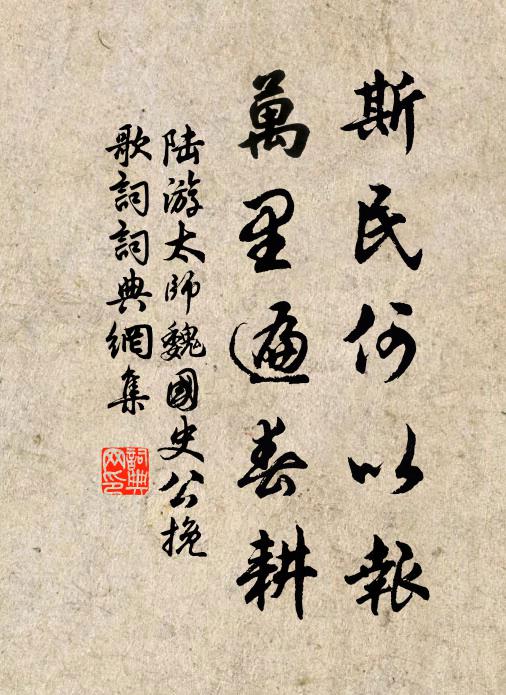 斯民何以報
萬里遍春耕
陆游太師魏國史公挽
歌詞詞典網集
詞典
网印